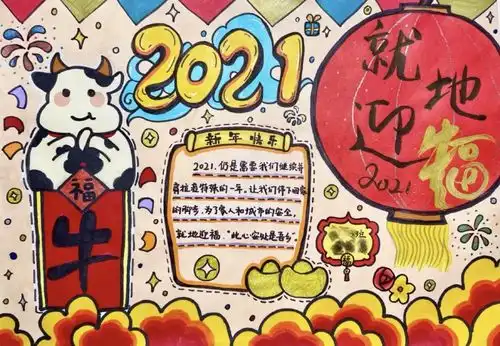 2021
就
地
迎
福
2021
福
牛
新年快乐
2021, 仍是需要我们继续并
特殊的一年, 让我们停下回家
的脚步, 为了家人和城市的安全,
就地迎福 "此心安处是吾乡"